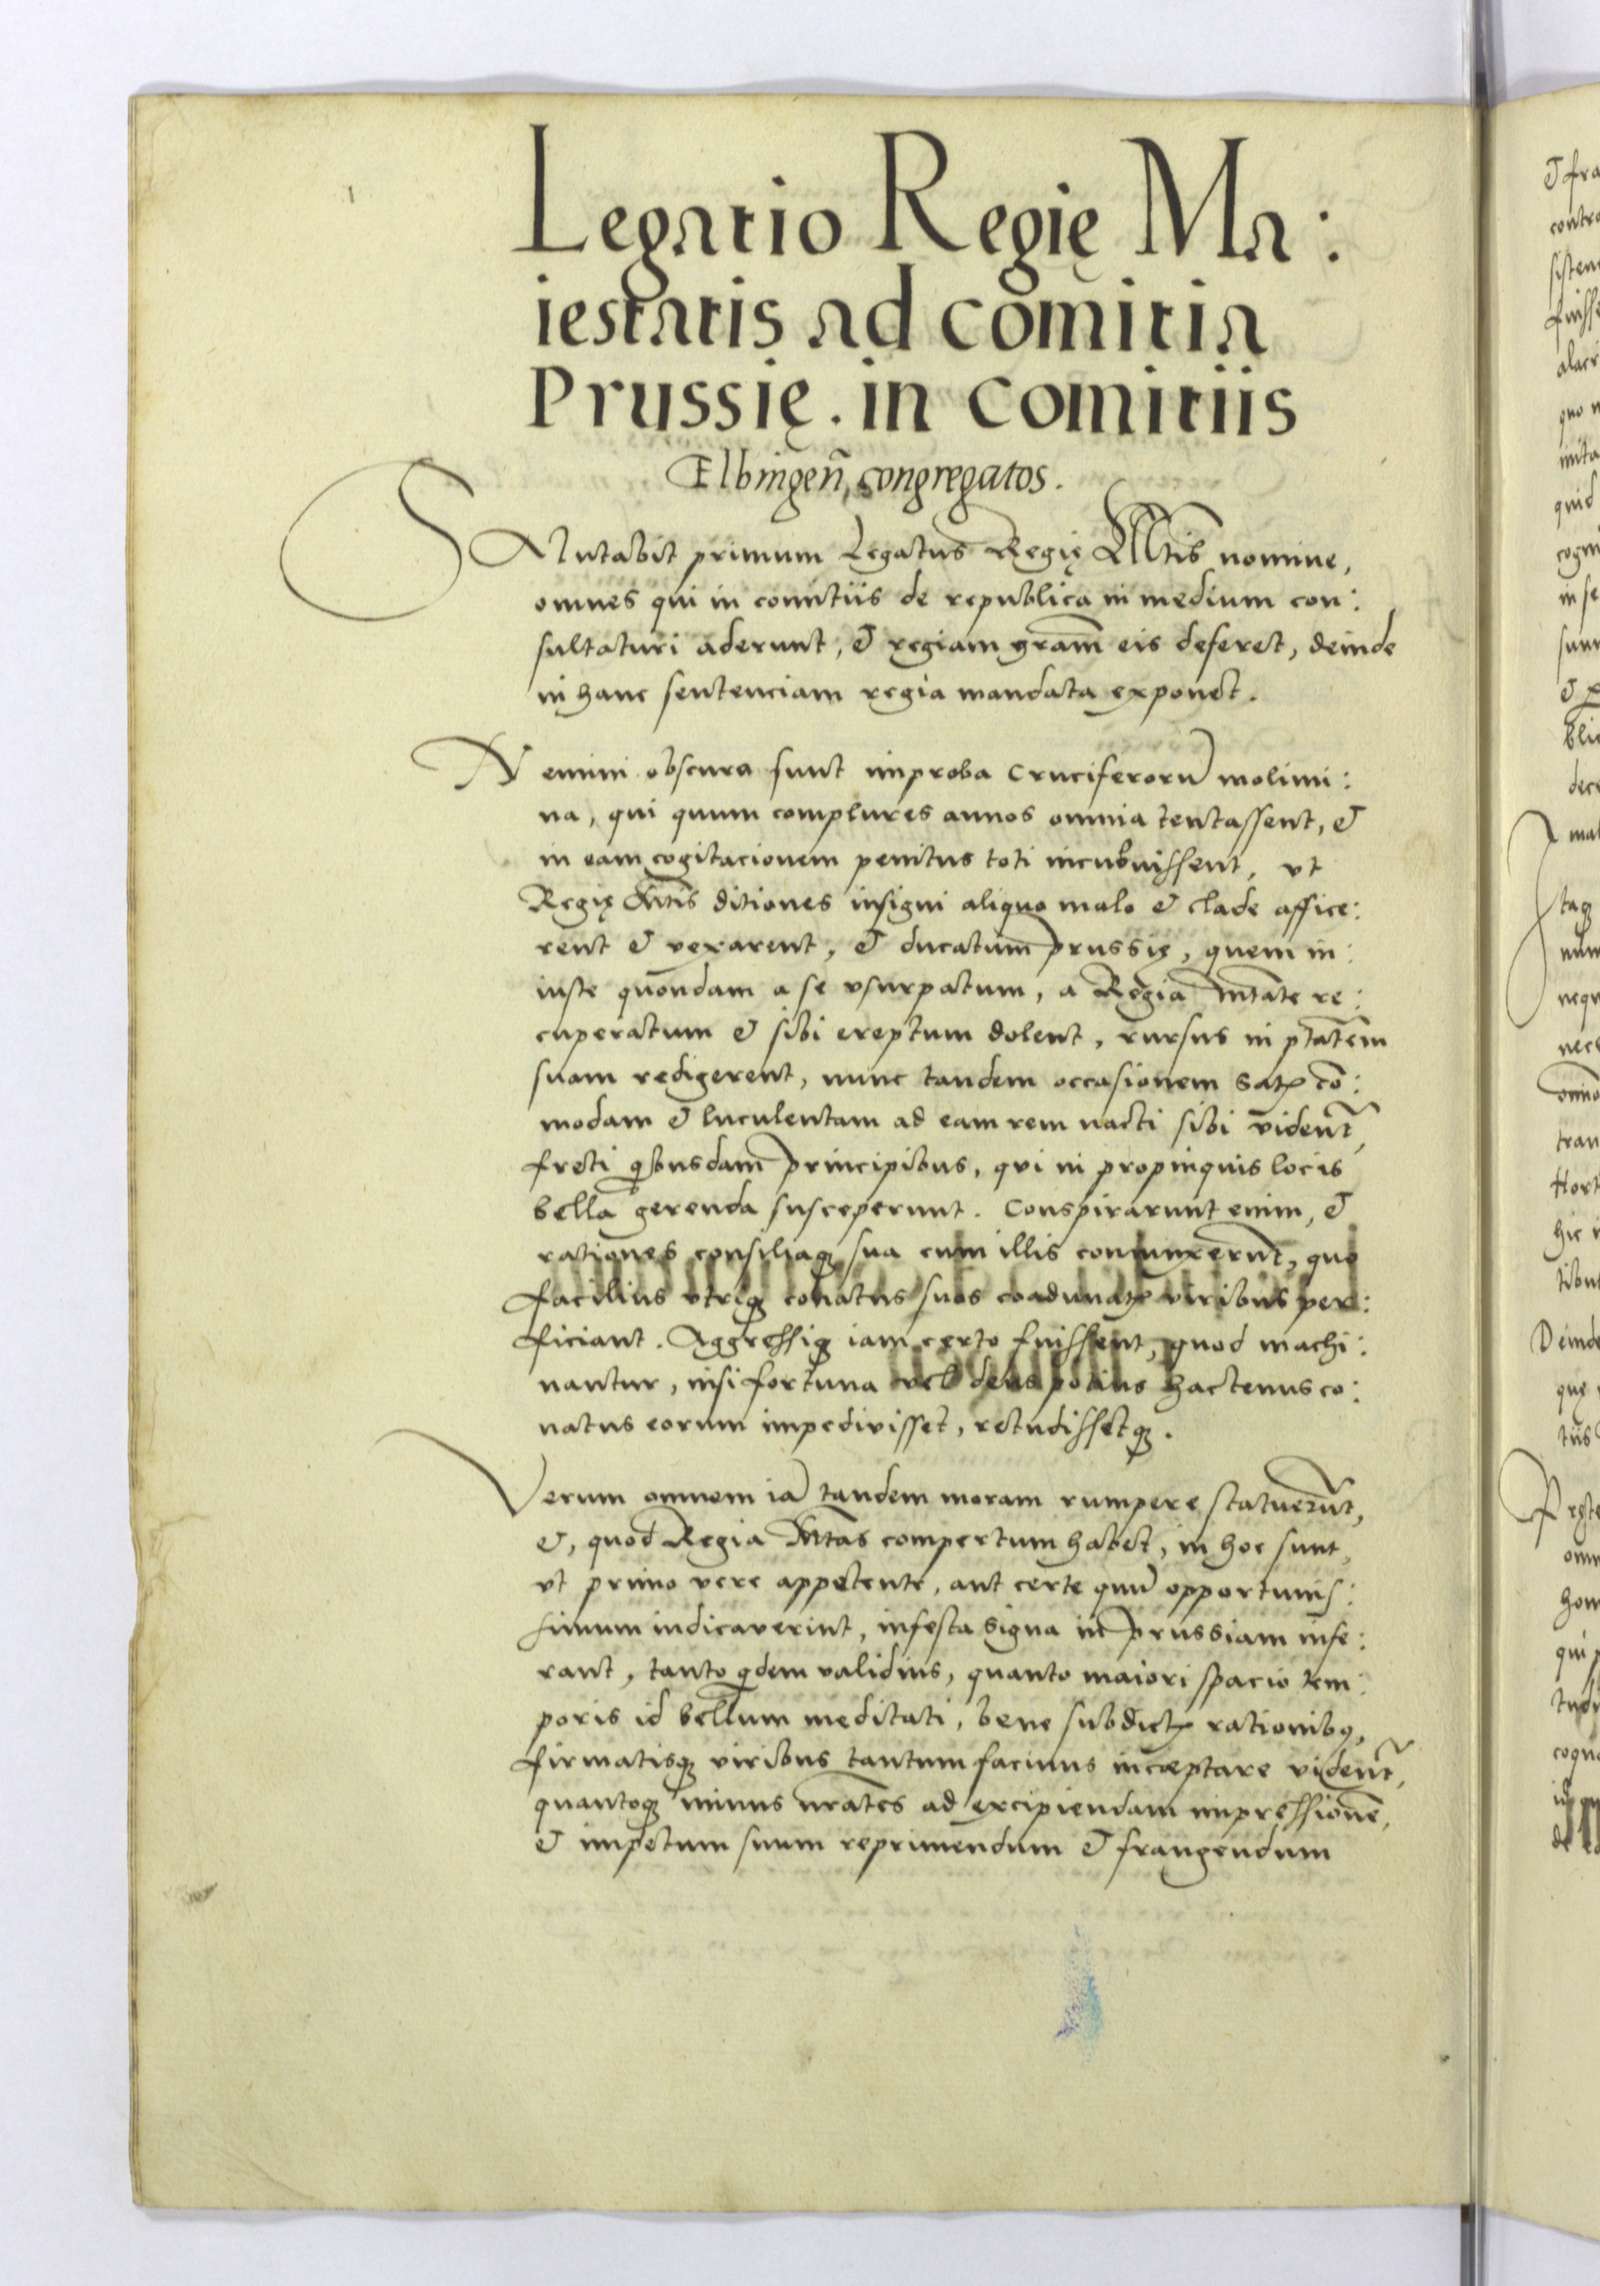 Legatio Regię Ma:
iestatis ad comitia
Prussię. in comitiis
Elbingeñ, congregatos.
SAlutabit primum Legatus Regię Mtis nomine,
omnes qui in comitiis de republica in medium con:
sultaturi aderunt, & regiam gram̄ eis deferet, deinde
in hanc sentenciam regia mandata exponet.
Nemini obscura sunt improba Cruciferorū molimi:
na, qui quum complures annos omnia tentassent, &
in eam cogitacionem penitus toti incubuissent, vt
Regię Mtis ditiones insigni aliquo malo & clade affice:
rent & vexarent, & ducatum Prussię, quem in:
iuste quondam a se vsurpatum, a Regia mtate re:
cuperatum & sibi ereptum dolent, rursus in ptatem
suam redigerent, nunc tandem occasionem satꝭ cō:
modam & luculentam ad eam rem nacti sibi vident̄,
freti qbusdam principibus, qui in propinquis locis
bella gerenda susceperunt. Conspirarunt enim, &
rationes consiliaqꝫ sua cum illis coniunxerūt, quo
facilius vtriqꝫ conatus suos coadunatꝭ viribus per:
ficiant. Aggressiqꝫ iam certo fuissent, quod machi:
nantur, nisi fortuna vel deus potius hactenus co:
natus eorum impedivisset, retudissetqꝫ.
Verum omnem iā tandem moram rumpere statuerūt,
&, quod Regia Mtas compertum habet, in hoc sunt,
vt primo vere appetente, aut certe quū opportunis:
simum iudicaverint, infesta signa in Prussiam infe:
rant, tanto qdem validius, quanto maiori spacio tem:
poris id bellum meditati, bene subdictꝭ rationibꝫ,
firmatisqꝫ viribus tantum facinus inceptare vident̄,
quantoqꝫ minus nrates ad excipiendam impressionē,
& impetum suum reprimendum & frangendum